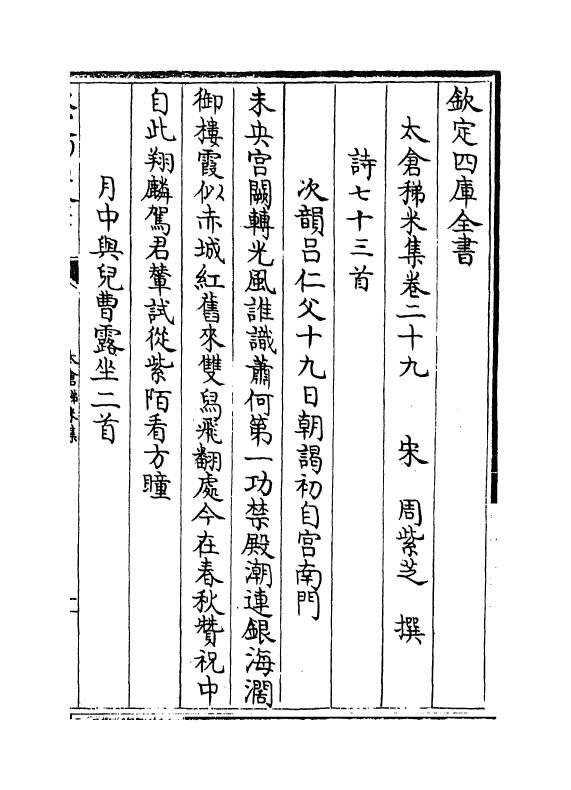 欽定四庫全書
太倉稊米集卷二十九　宋　周紫芝　撰
詩七十三首
次韻吕仁父十九日朝謁初自宫南門
未央宫闕轉光風誰識蕭何第一功禁殿潮連銀海濶
御樓霞似赤城紅舊來雙舄飛翻處今在春秋贊祝中
自此翔麟駕君輦試從紫陌看方瞳
月中與兒曹露坐二首
太倉稊米集